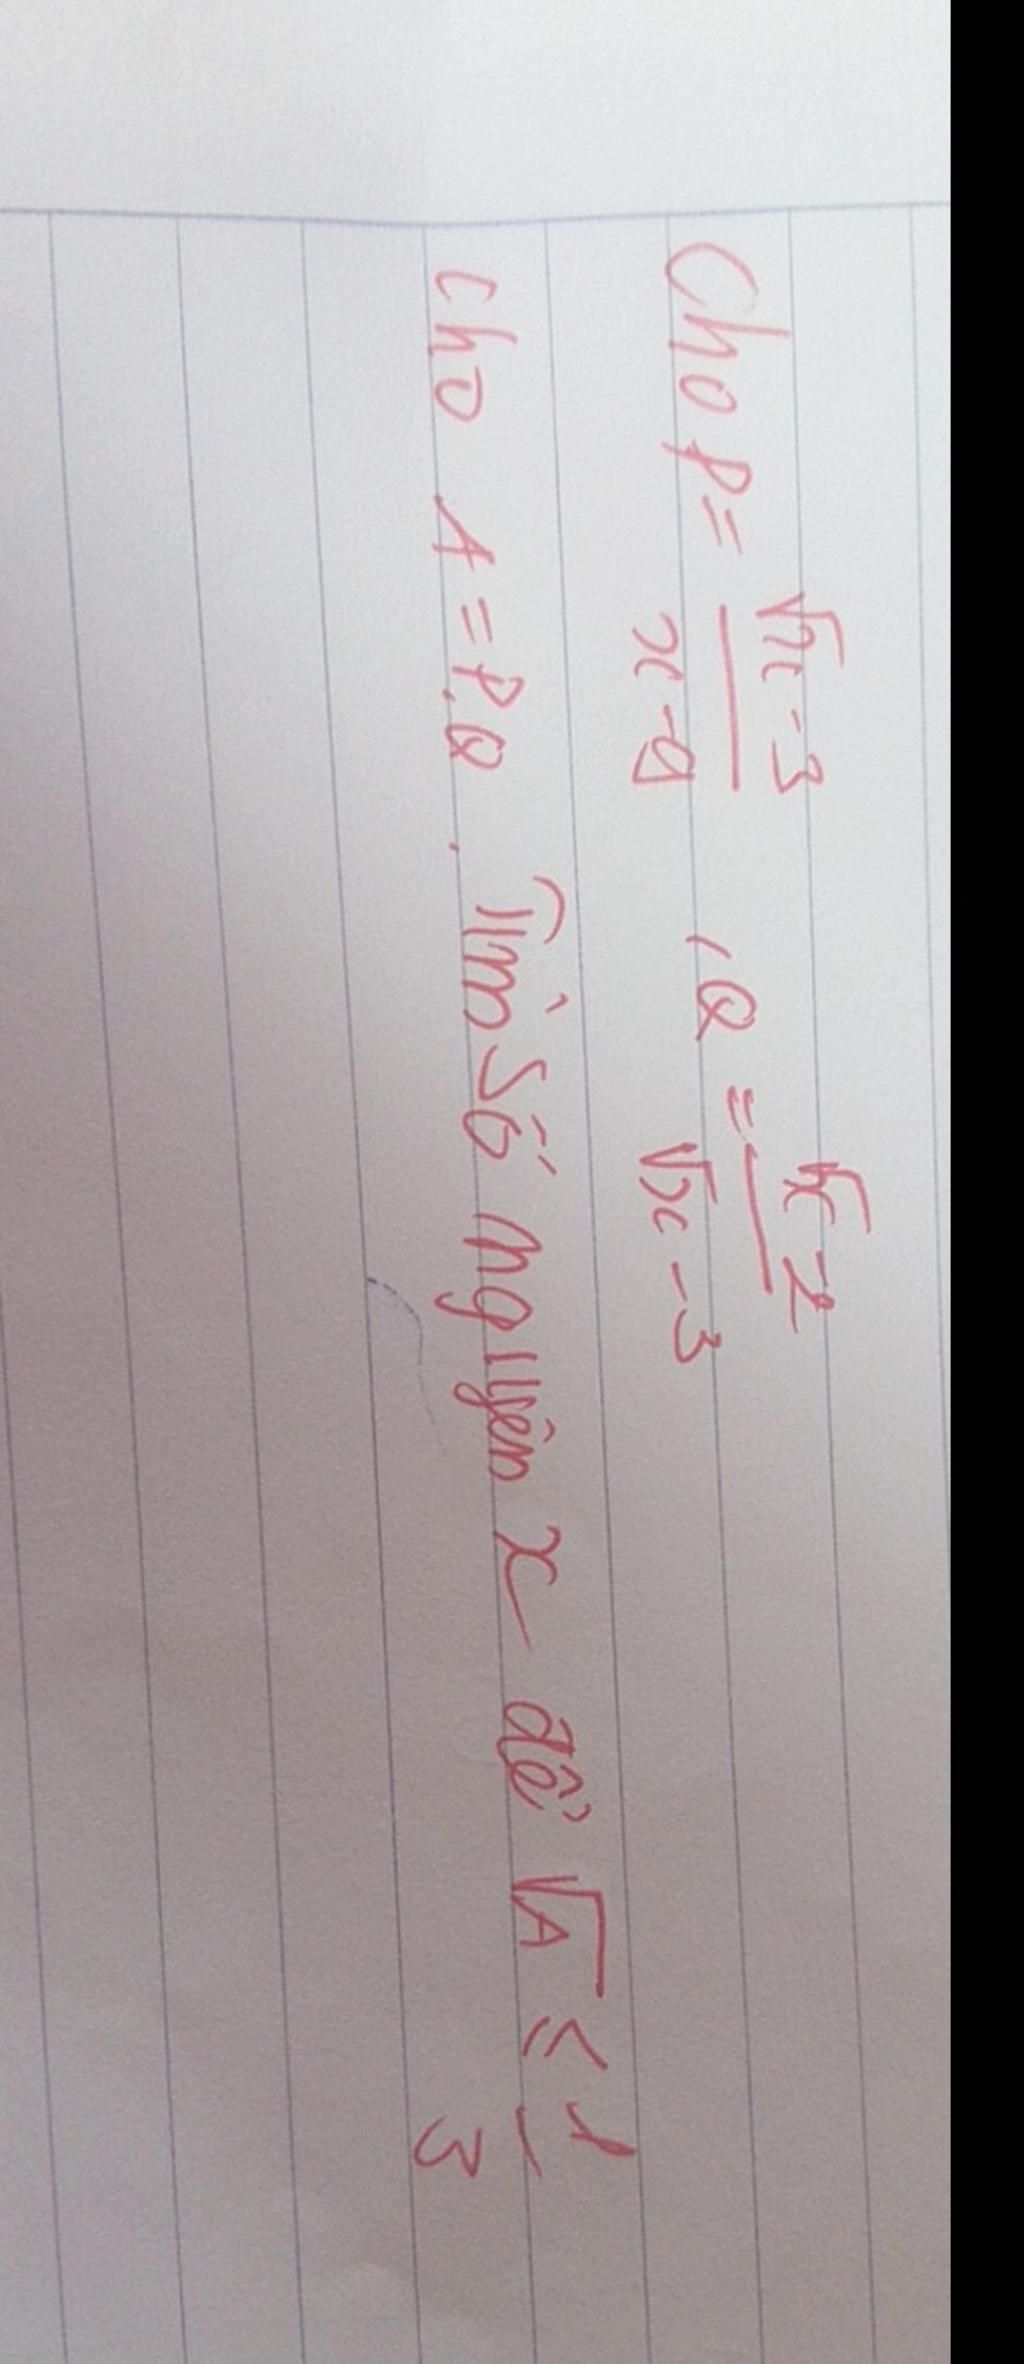 Cho P = \frac{\sqrt{x}-3}{x-9}, Q = \frac{\sqrt{x}-2}{\sqrt{x}-3}
Cho A = P.Q. Tìm số nguyên x để \sqrt{A} ≤ \frac{1}{3}